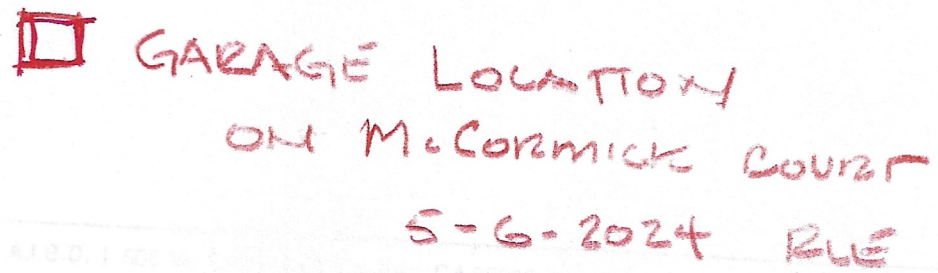 GARAGE LOCATION
ON McCORMICK COURT
5-6-2024 RLE